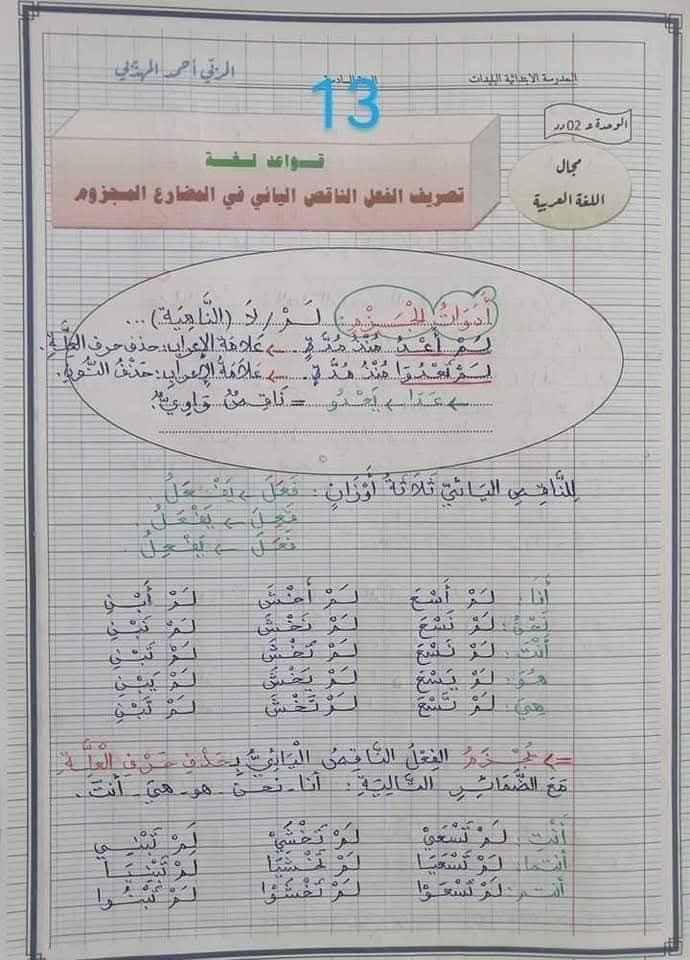 المدرسة الابتدائية البليدات السنة السادسة المربّي أحمد المهذبي
13
الوحدة عـ 02 دد
مجال
اللغة العربية
قواعد لغة
تصريف الفعل الناقص اليائي في المضارع المجزوم
أَدَوَاتُ الجَزْمِ: لَمْ / لَا (النَّاهِيَة) ...
لَمْ أَعْدُ مُنْذُ مُدَّةٍ. ← عَلَامَةُ الإِعْرَابِ: حذف حرف العلّةِ.
لَمْ تَعْدُوا مُنْذُ مُدَّةٍ. ← عَلَامَةُ الإِعْرَابِ: حَذْفُ النُّونِ.
← عَدَا ← يَعْدُو = نَاقِصٌ وَاوِيٌّ.
لِلنَّاقِصِ اليَائِيِّ ثَلَاثَةُ أَوْزَانٍ: فَعَلَ ← يَفْعَلُ.
فَعِلَ ← يَفْعَلُ.
فَعَلَ ← يَفْعِلُ.
أَنَا: لَمْ أَسْعَ لَمْ أَخْشَ لَمْ أَبْنِ
نَحْنُ: لَمْ نَسْعَ لَمْ نَخْشَ لَمْ نَبْنِ
أَنْتَ: لَمْ تَسْعَ لَمْ تَخْشَ لَمْ تَبْنِ
هُوَ: لَمْ يَسْعَ لَمْ يَخْشَ لَمْ يَبْنِ
هِيَ: لَمْ تَسْعَ لَمْ تَخْشَ لَمْ تَبْنِ
=> يُجْزَمُ الفِعْلُ النَّاقِصُ الْيَائِيُّ بِحَذْفِ حَرْفِ الْعِلَّةِ
مَعَ الضَّمَائِرِ التَّالِيَةِ: أنا - نحن - هو - هي - أنتَ.
أَنْتِ: لَمْ تَسْعَيْ لَمْ تَخْشَيْ لَمْ تَبْنِي
أنتما: لَمْ تَسْعَيَا لَمْ تَخْشَيَا لَمْ تَبْنِيَا
أنتم: لَمْ تَسْعَوْا لَمْ تَخْشَوْا لَمْ تَبْنُوا